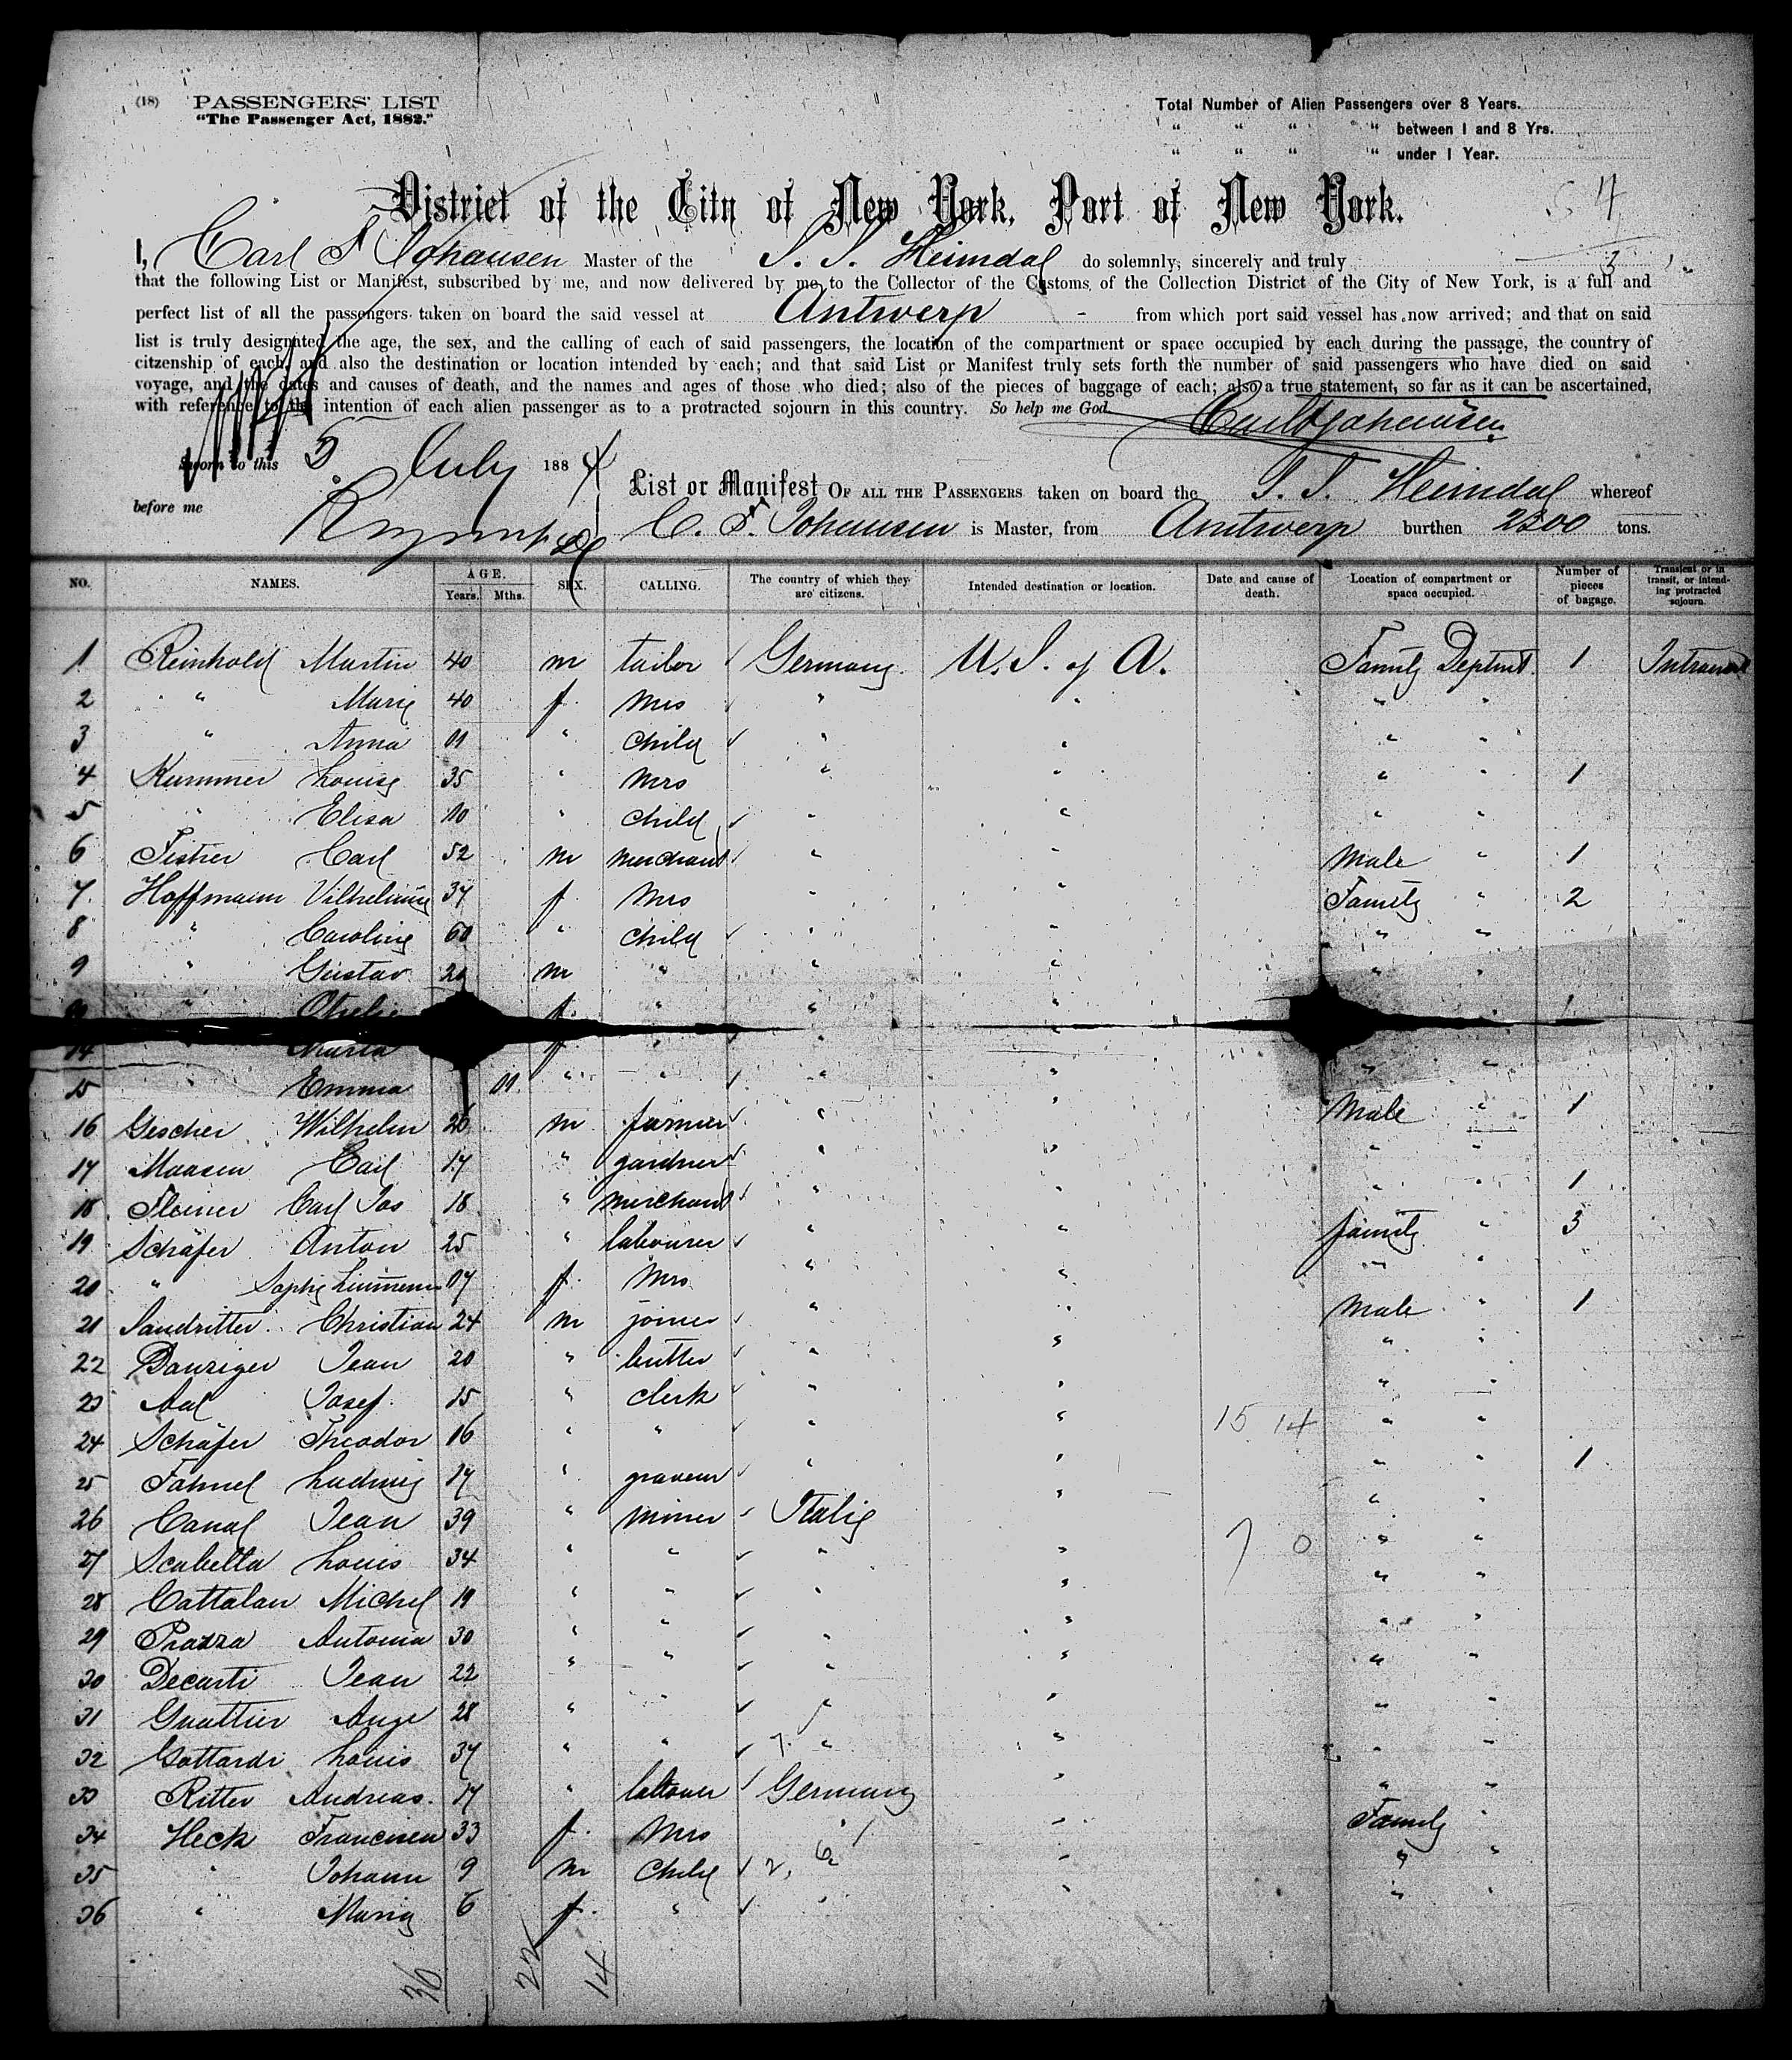 (18) PASSENGERS' LIST
"The Passenger Act, 1882."
Total Number of Alien Passengers over 8 Years.
" " " " between 1 and 8 Yrs.
" " " " under 1 Year.
District of the City of New York, Port of New York.
I, Carl Johansen Master of the S. S. Heimdal do solemnly, sincerely and truly
that the following List or Manifest, subscribed by me, and now delivered by me to the Collector of the Customs of the Collection District of the City of New York, is a full and
perfect list of all the passengers taken on board the said vessel at Antwerp - from which port said vessel has now arrived; and that on said
list is truly designated the age, the sex, and the calling of each of said passengers, the location of the compartment or space occupied by each during the passage, the country of
citzenship of each, and also the destination or location intended by each; and that said List or Manifest truly sets forth the number of said passengers who have died on said
voyage, and the dates and causes of death, and the names and ages of those who died; also of the pieces of baggage of each; also a true statement, so far as it can be ascertained,
with reference to the intention of each alien passenger as to a protracted sojourn in this country. So help me God.
Sworn to this 5 July 1884
before me
List or Manifest OF ALL THE PASSENGERS taken on board the S. S. Heimdal whereof
C. Johansen is Master, from Antwerp burthen 2300 tons.
NO. NAMES. AGE. Years. Mths. SEX. CALLING. The country of which they are citizens. Intended destination or location. Date and cause of death. Location of compartment or space occupied. Number of pieces of bagage. Transient or in transit, or intending protracted sojourn.
1 Reinhold Martin 40 m tailor Germany U. S. of A. Family Deptmt. 1
2 " Marie 40 f. Mrs " " " "
3 " Anna 01 " child " " " "
4 Kummer Louise 35 " Mrs " " " " 1
5 " Elisa 10 " child " " " "
6 Carl 52 m merchant " " Male " 1
7 Hoffmann 37 f. Mrs " " Family " 2
8 " Caroline 60 " child " " " "
9 " Gustav m " " " " "
f. " " " 1
14 f " "
15 " Emma 01 " " " " " "
16 Gescher Wilhelm 26 m farmer " " Male " 1
17 Maasen Carl 17 " gardner " " " "
18 Carl Jos 18 " merchant " " " " 1
19 Schäfer Anton 25 " labourer " " family " 3
20 " f. Mrs " " " "
21 Sandritter Christian 24 m joiner " " Male " 1
22 Danziger Jean 20 " " " " "
23 Aal Josef 15 " clerk " " " "
24 Schäfer Theodor 16 " " " " 15 14 " "
25 Ludwig 17 " graveur " " " " 1
26 Canal Jean 39 " miner Italie " " "
27 Scabella Louis 34 " " " " 7 0 " "
28 Cattalan Michel 19 " " " " " "
29 Piazza Antonia 30 " " " " " "
30 Decarti Jean 22 " " " " " "
31 Ange 28 " " " " " "
32 Gottardi Louis 37 " " " " " "
33 Ritter Andreas 17 " Germany " " "
34 Heck 33 f. Mrs " " Family "
35 " Johann 9 m Child " " "
36 " Maria 6 f. " " " " "
36 22 14